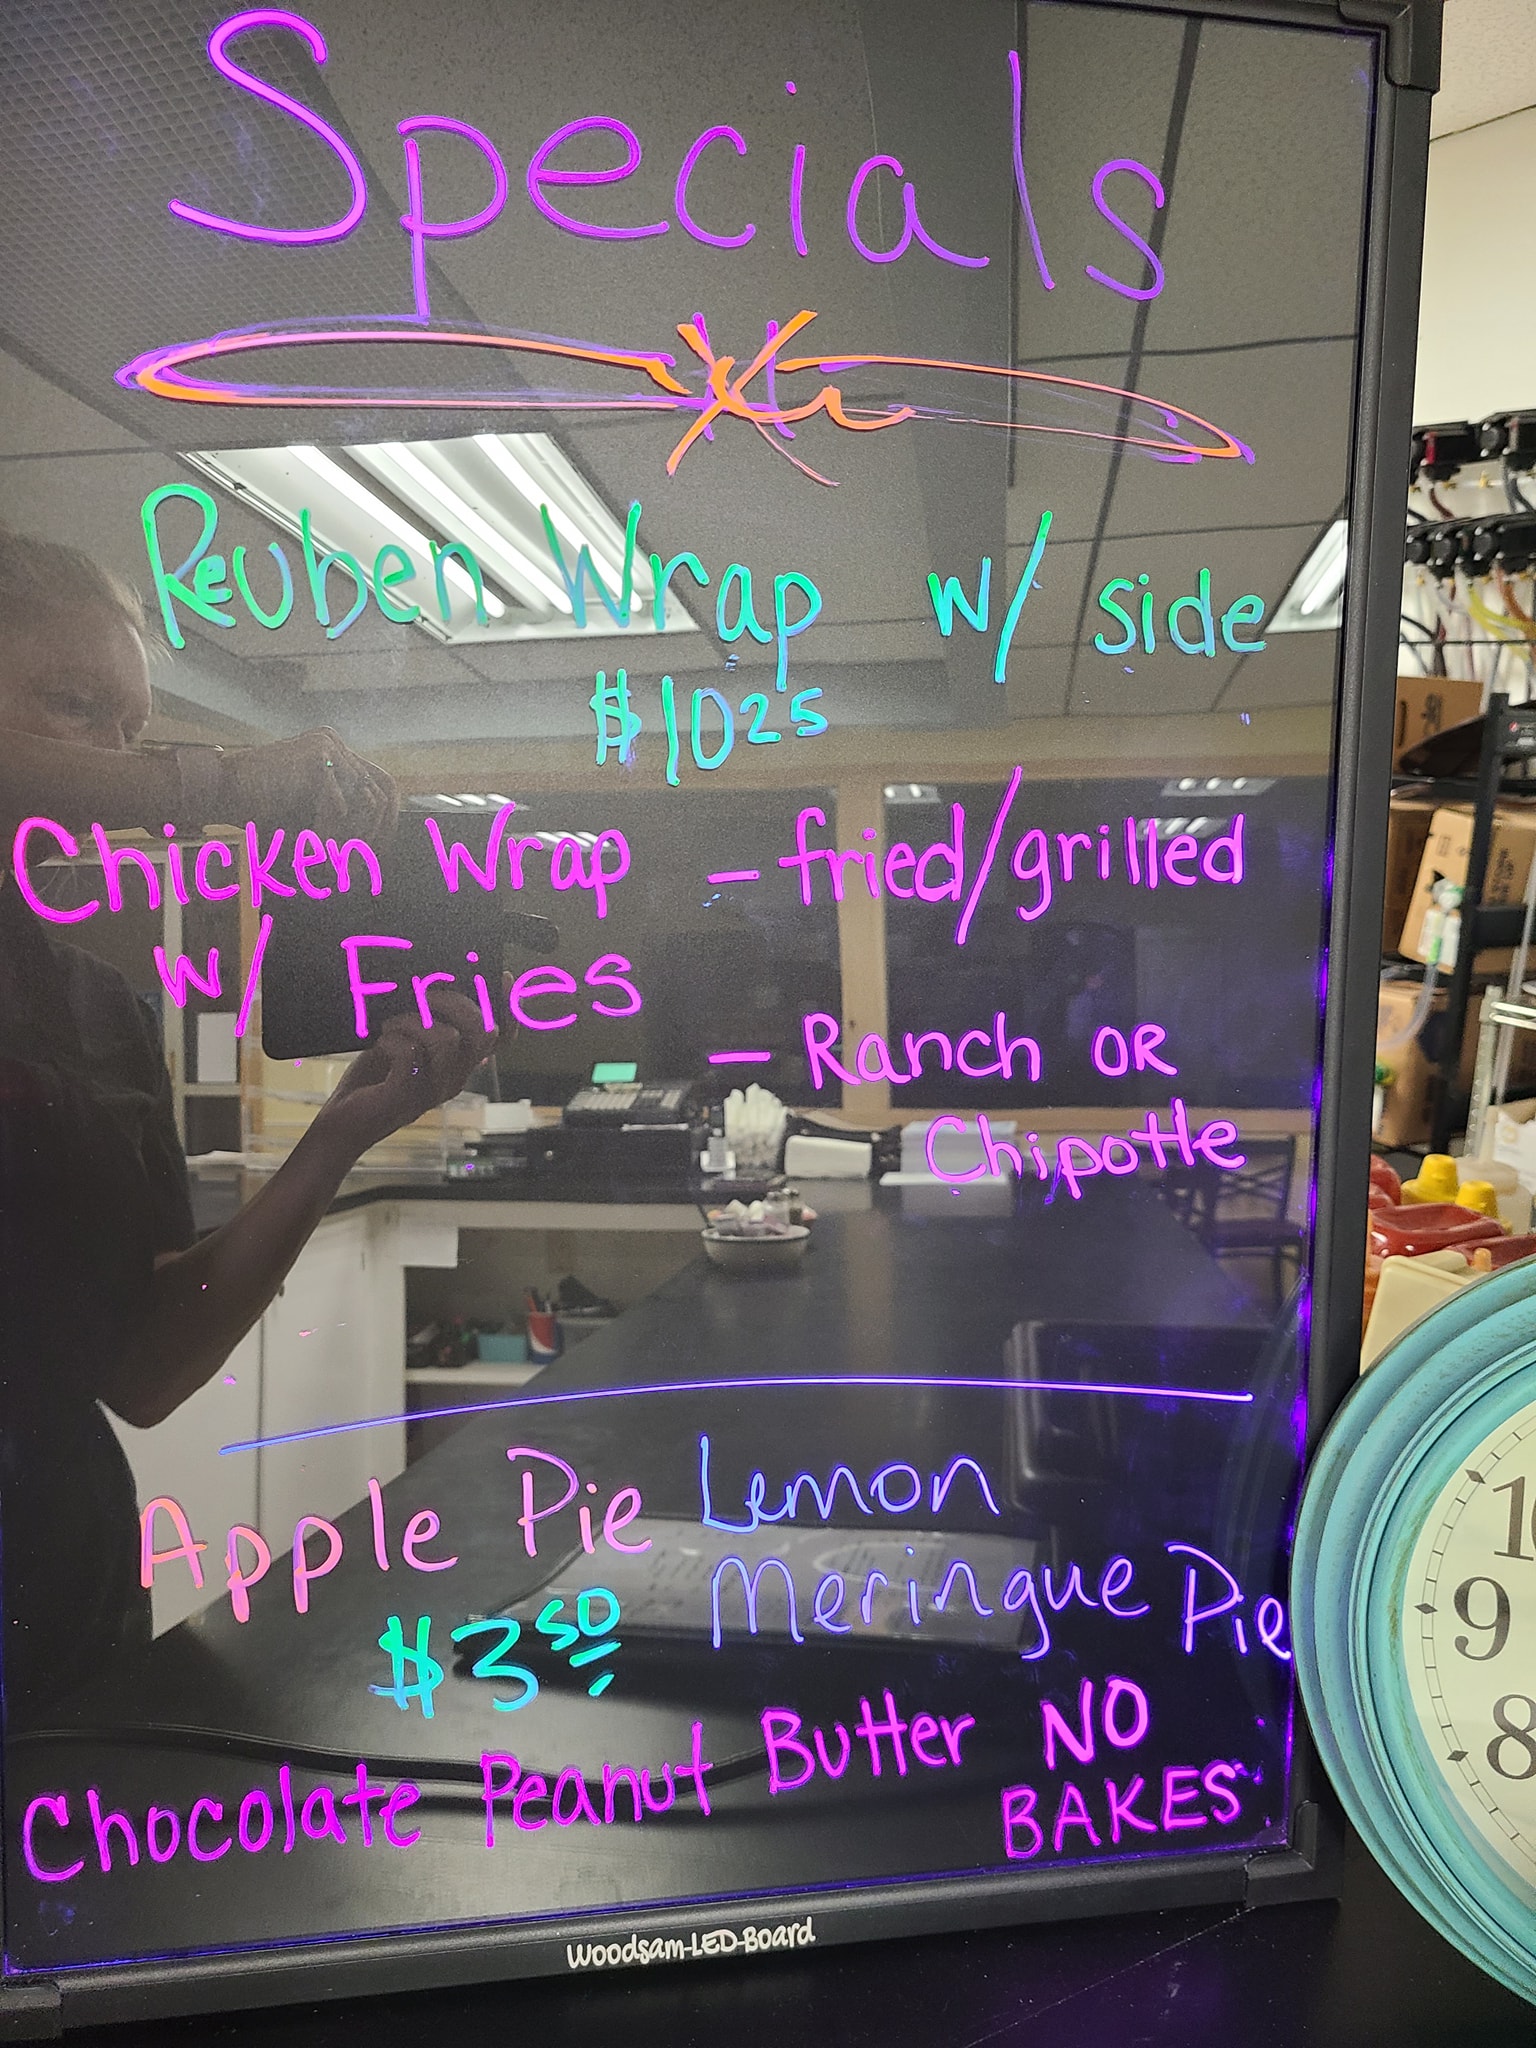 Specials
Reuben Wrap w/ side
$10 25
Chicken Wrap - fried/grilled
w/ Fries
- Ranch OR
Chipotle
Apple Pie
$3 50
Lemon
Meringue Pie
Chocolate Peanut Butter NO
BAKES
Woodsam-LED-Board
9
8